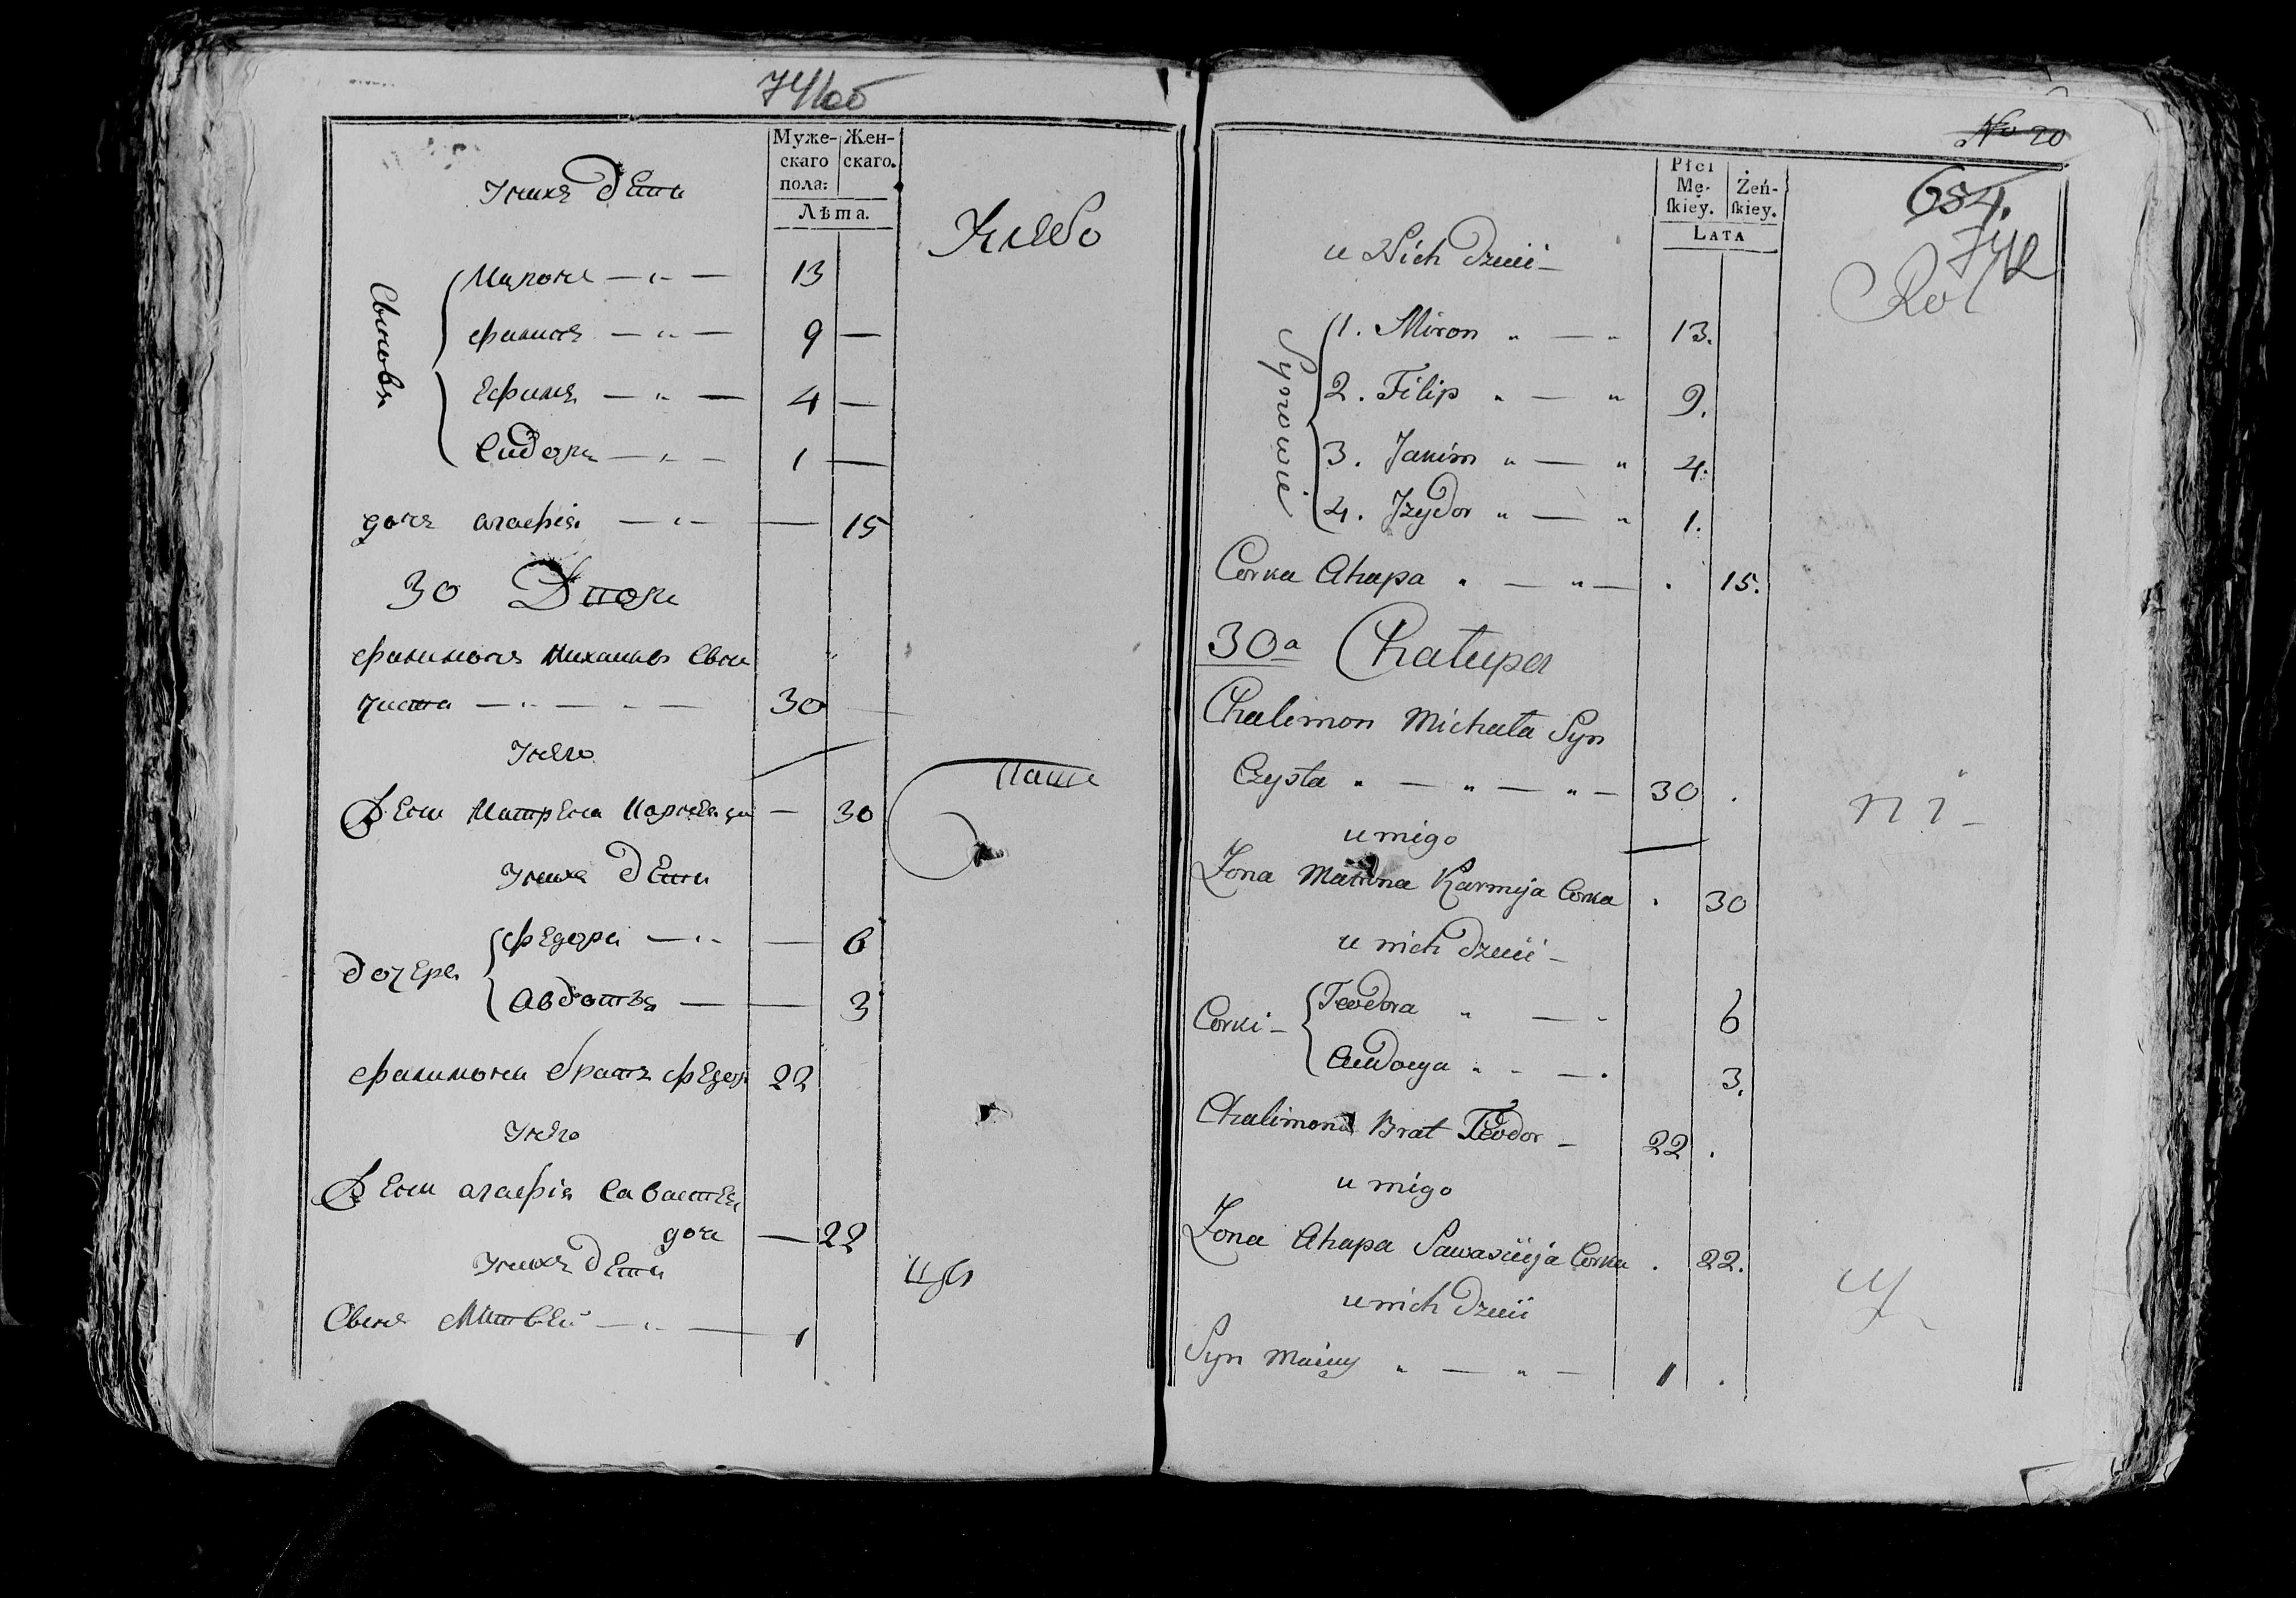 741об
Муже-
скаго
пола:
Жен-
скаго.
Лѣта.
У нихъ дѣти
Сыновья
Миронъ 13
Филипъ 9 —
Ефимъ 4 —
Сидоръ 1 —
дочь Агафія — 15
30 Дворъ
Филимонъ Михаиловъ Сынъ
Чиста 30
У него
Жена Матрена — 30
У нихъ дѣти
дочери
Федора — 6
Авдотья — 3
Филимона братъ Федоръ 22
У него
Жена Агафія Савастѣя
дочь — 22
У нихъ дѣти
Сынъ Матвѣй 1
No 20
Płci
Mę-
ſkiey.
Żeń-
ſkiey.
LATA
684.
742
u Nich dzieci
Synowie
1. Miron 13.
2. Filip 9.
3. Jakim 4.
4. Jzydor 1.
Corka Ahapa 15.
30a Chałupa
Chalimon Michała Syn
Czysta 30
u niego
Zona Matrona Karnieja Corka 30
u nich dzieci
Corki
Teodora 6
Awdocya 3.
Chalimona Brat Teodor 22
u niego
Zona Ahapa Sawaścieja Corka 22.
u nich dzieci
Syn Maciey 1